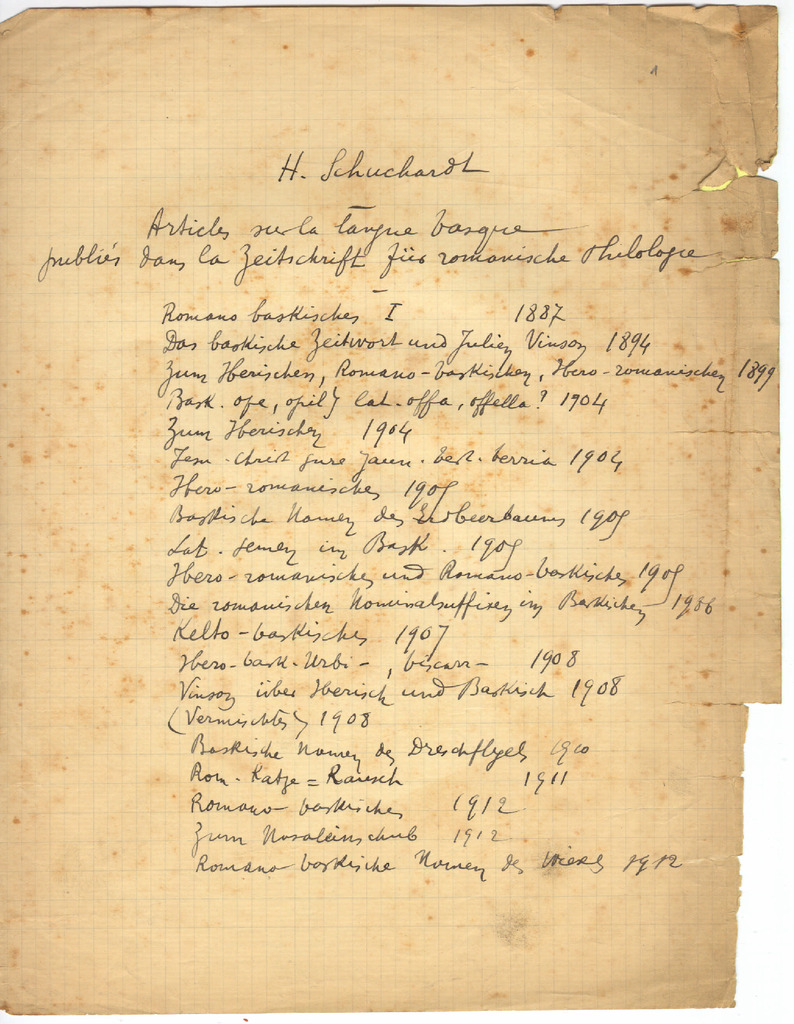 1
H. Schuchardt
Articles sur la langue basque
publiés dans la Zeitschrift für romanische Philologie
Romano baskisches I 1887
Das baskische Zeitwort und Julien Vinson 1894
Zum Iberischen, Romano-baskischen, Ibero-romanischen 1899
Bask. ope, opil) lat. offa, offella? 1904
Zum Iberischen 1904
Jesu-Christ gure Jaun. Test. berria 1904
Ibero-romanisches 1905
Baskische Namen des Erdbeerbaums 1905
Lat. semen im Bask. 1905
Ibero-romanisches und Romano-baskisches 1905
Die romanischen Nominalsuffixen im Baskischen 1906
Kelto-baskisches 1907
Ibero-bask. Urbi-, biscarr- 1908
Vinson über Iberisch und Baskisch 1908
(Vermischtes) 1908
Baskische Namen des Dreschflegels 1910
Rom. Katze = Rausch 1911
Romano-baskisches 1912
Zum Nasaleinschub 1912
Romano baskische Namen des Wiesels 1912